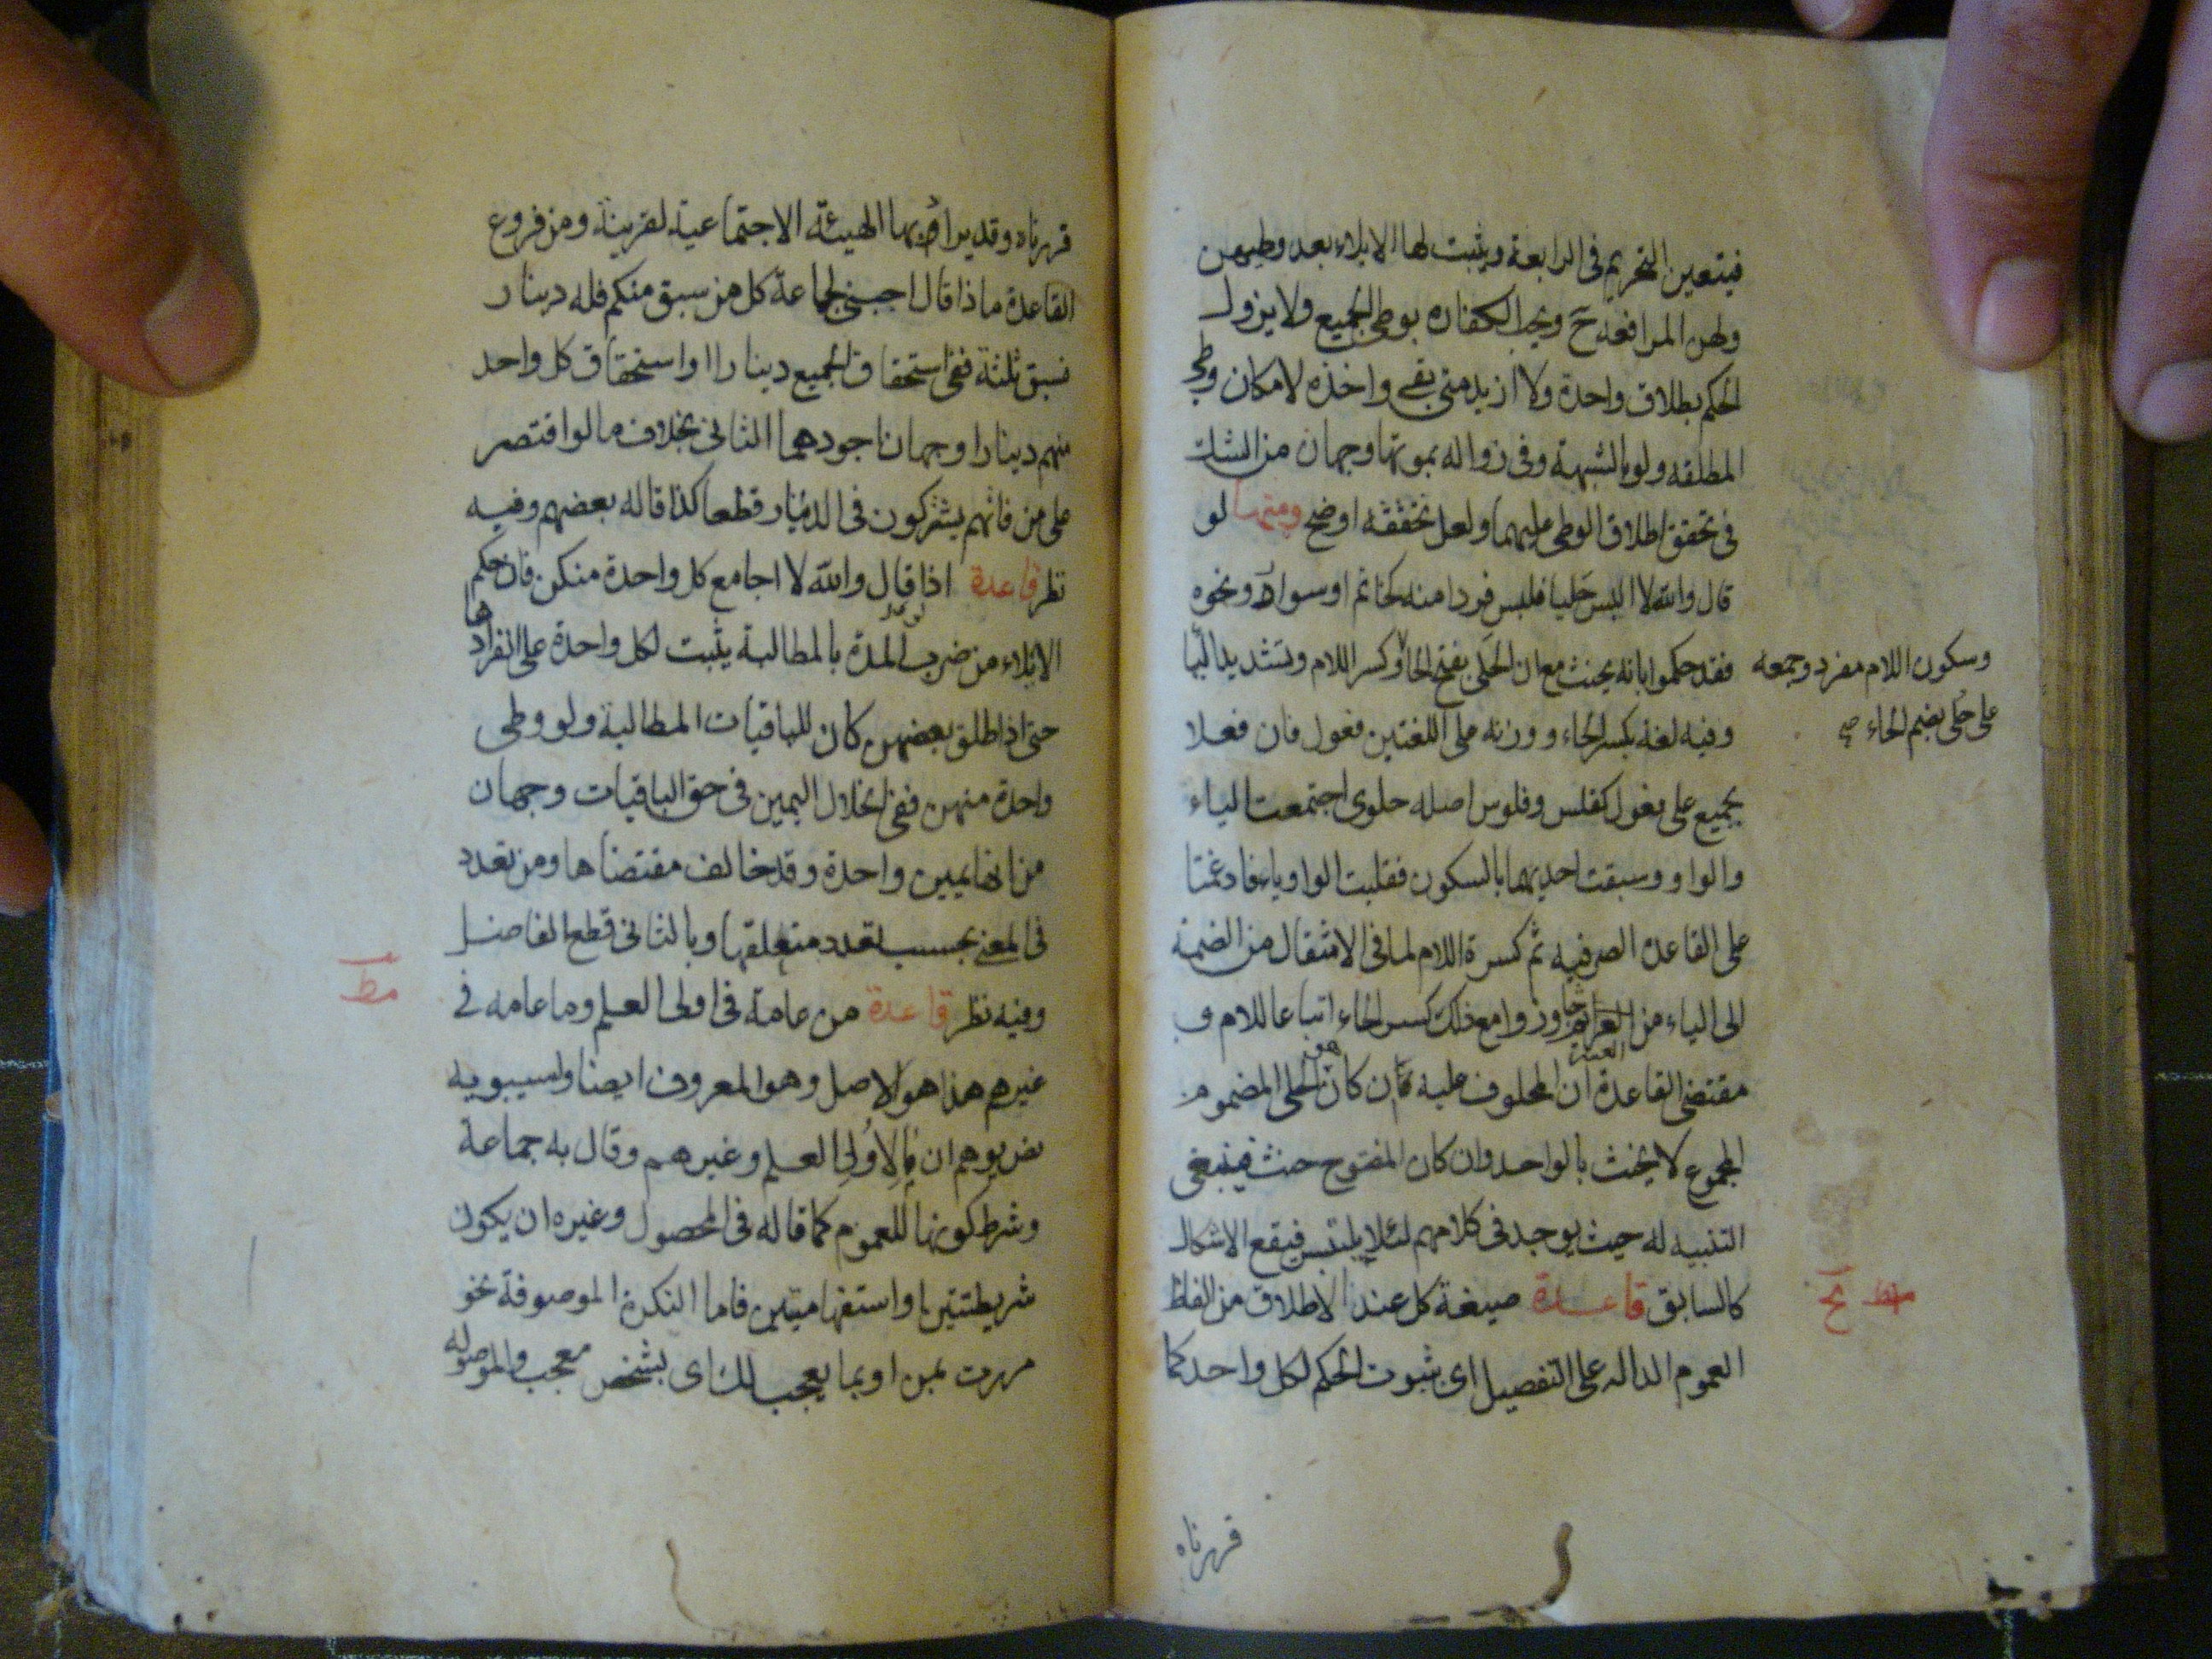 فيتعين التحريم في الرابعة ويثبت لها الايلاء بعد وطيهن
ولهن المرافعه ح ويجب الكفاره بوطى الجميع ولا يزول
الحكم بطلاق واحدة ولا ازيد متى بقى واحده لامكان وطى
المطلقه ولو بالشبهة وفى زواله بموتها وجهان من الشك
فى تحقق اطلاق الوطى عليهما ولعل تحققه اوضح ومنها لو
قال والله لا البس حليا فلبس فردا منه كخاتم او سوار ونحوه
فقد حكموا بانه يحنث مع ان الحلى بفتح الحا وكسر اللام وتشديد اليا
وسكون اللام مفرد وجمعه
على حلى بضم الحاء صح
وفيه لغة بكسر الحاء ووزنه على اللغتين فعول فان فعلا
يجمع على فعول كفلس وفلوس اصله حلوى اجتمعت الياء
والواو وسبقت احديهما بالسكون فقلبت الواو ياء فادغمتا
على القاعدة الصرفيه ثم كسرة اللام لما فى الانتقال من الضمة
الى الياء من العسر وجاوزوا مع ذلك كسر الحاء اتباعا للام و
مقتضى القاعدة ان المحلوف عليه ان كان هو الحلى المضموم
المجموع لا يحنث بالواحد وان كان المفتوح حنث فينبغى
التنبيه له حيث يوجد فى كلامهم لئلا يلتبس فيقع الاشكال
كالسابق قاعدة صيغة كل عند الاطلاق من الفاظ
مح
العموم الداله على التفصيل اى ثبوت الحكم لكل واحد كما
قررناه
قررناه وقد يراد بها الهيئة الاجتماعية لقرينة ومن فروع
القاعدة ما اذا قال اجنبى لجماعة كل من سبق منكم فله دينار
فسبق ثلثة ففى استحقاق الجميع دينارا او استحقاق كل واحد
منهم دينارا وجهان اجودهما الثانى بخلاف ما لو اقتصر
على من فانهم يشتركون فى الدينار قطعا كذا قاله بعضهم وفيه
نظر قاعدة اذا قال والله لا اجامع كل واحدة منكن فان حكم
الايلاء من ضرب المدة بالمطالبة يثبت لكل واحدة على انفرادها
حتى اذا طلق بعضهن كان للباقيات المطالبة ولو وطى
واحدة منهن ففى انحلال اليمين فى حق الباقيات وجهان
من انها يمين واحدة وقد خالف مقتضاها ومن تعدد
فى المعنى بحسب تعدد متعلقها وبالثانى قطع الفاضل
وفيه نظر قاعدة من عامة فى اولى العلم وما عامه فى
مط
غيرهم هذا هو الاصل وهو المعروف ايضا ولسيبويه
نص يوهم ان ما لاولى العلم وغيرهم وقال به جماعة
وشرط كونها للعموم كما قاله فى المحصول وغيره ان يكون
شرطيتين او استفهاميتين فاما النكرة الموصوفة نحو
مررت بمن او بما يعجب لك اى بشخص معجب والموصوله